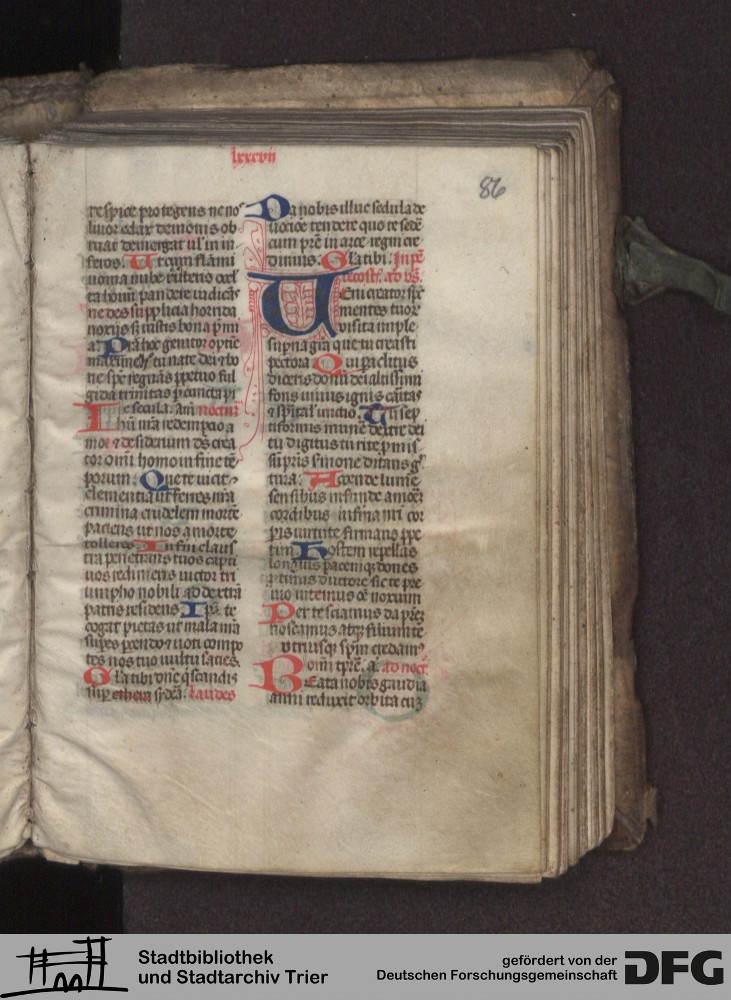 lxxxvii
86
respice protegens ne nos
livor edax demonis ob
ruat demergat ul' in in
feros. Ut cum flammi
voma nube rutilens cel
ca homī pandere
nes des supplicia horrida
noxijs iustis bona premi
a. Prahoc genitor optie
maxime tu nate dei et bo
ne spc regnās ppetuo ful
gida trinitas p cuncta pi
e secula. am nocturn
Ihū nrā redempcio a
mor et desiderium ds crea
tor omī homo in fine tē
porum. Que te vicit
clementia ut ferres nrā
crimina crudelem mortē
paciens ut nos a morte
tolleres Inferni claus
tra penetrans tuos capti
vos redimens victor tri
umpho nobili ad dextrā
patris residens Ipa te
cogat pietas ut mala nrā
supes pcendo et voti compo
tes nos tuo vultu sacies.
Gla tibi dne q scandis
sup ethera sydea. laudes
Da nobis illuc sedula de
uocione tendere quo te sedē
cum prē in arce regni cre
dimus. Gla tibi. In pē
tecost. ad vs.
Veni creator spc
mentes tuor
visita imple
supna gra que tu creasti
pectora Qui paclitus
diceris donū dei altissimi
fons vivus ignis caritas
et spiritalis unctio. Tu sep
tiformis munere dextre dei
tu digitus tu rite pmis
su pris sermone ditans g
tura. Accende lumē
sensibus infunde amorē
cordibus infirma nri cor
pris virtute firmans ppe
tim Hostem repellas
longius pacemq dones
protinus ductore sic te pre
vio vitemus oē noxium
Per te sciamus da prēz
noscamus atq filium te
utriusq spm credam
Beata nobis gaudia
anni reduxit orbita cuz
Stadtbibliothek
und Stadtarchiv Trier
gefördert von der
Deutschen Forschungsgemeinschaft
DFG